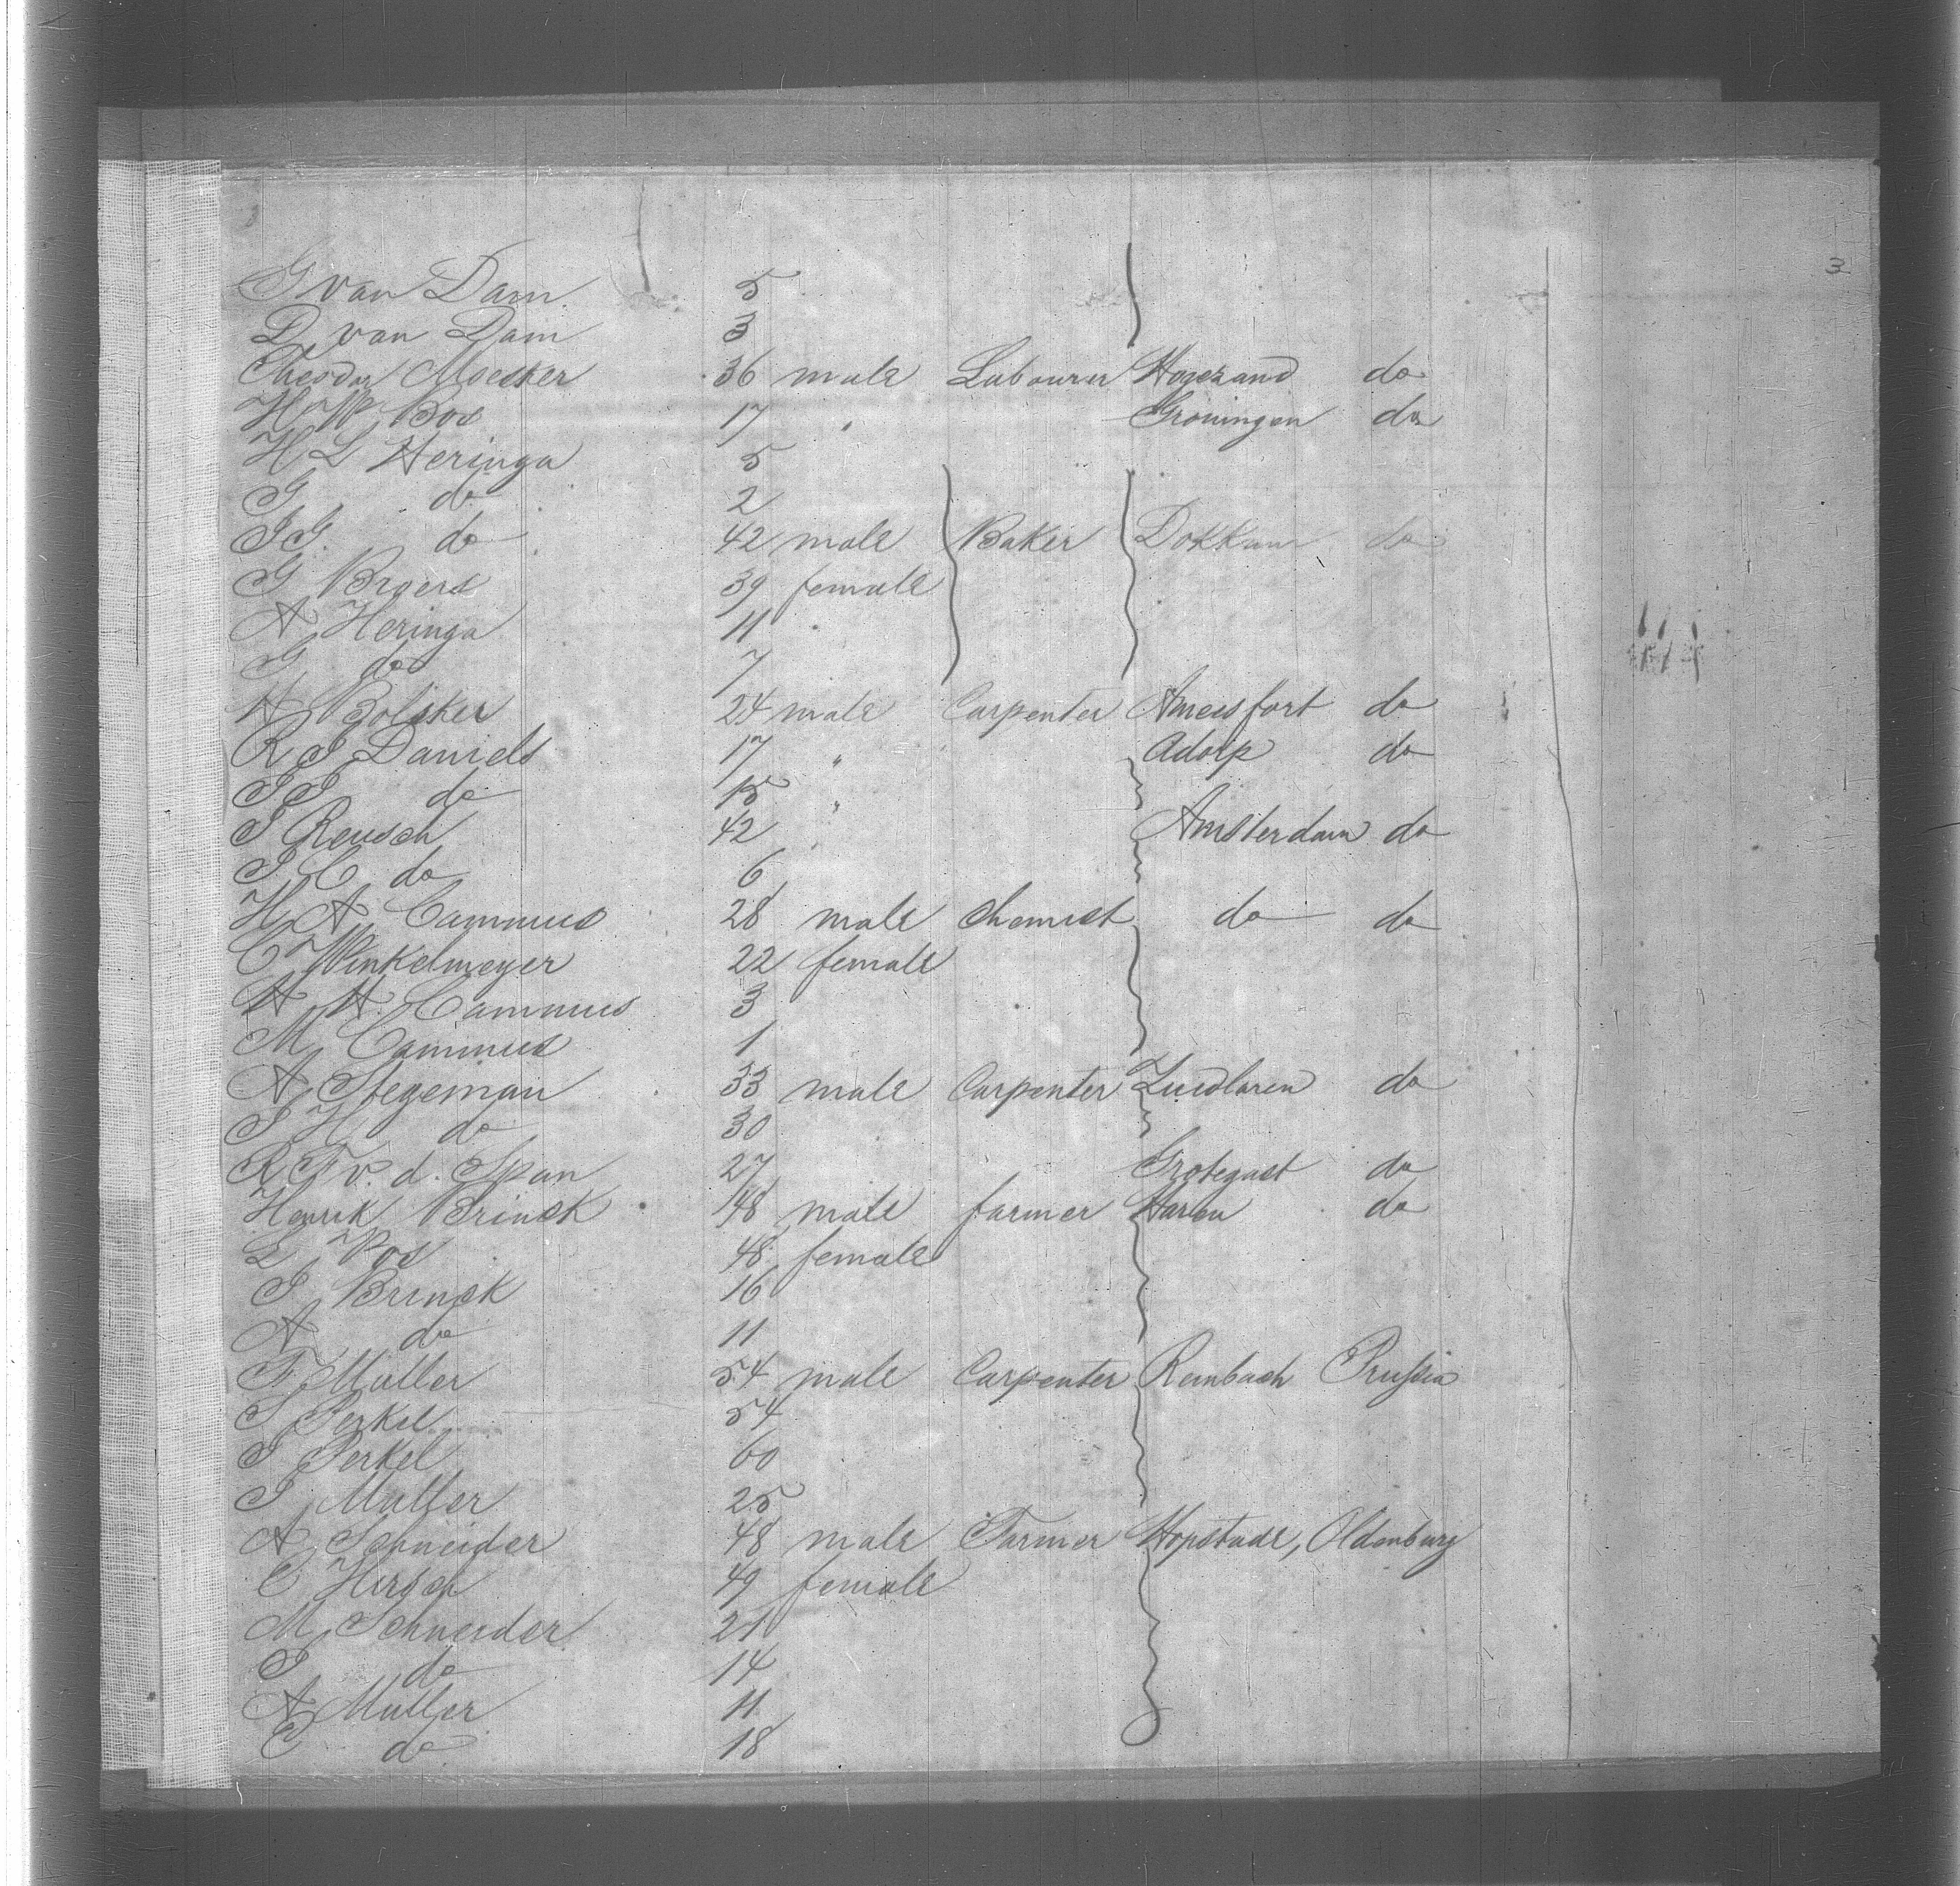 3
G van Dam 5
D. van Dam 3
Theodor Moesker 36 male Labourer Hogezand do
H W Bos 17 " Groningen do
H L Heringa 5
G do 2
J J. do 42 male Baker Dokkum do
G Broers 39 female
A Heringa 11 "
G do 7
H Bolsker 24 male Carpenter Ameesfort do
R J Daniels 17 " Adorp do
J J do 15 "
J Reusch 42 " Amsterdam do
J C do 6
H A Cammus 28 male Chemist do do
C Winkelmeyer 22 female
A A. Cammus 3
M Cammus 1
A Stegeman 33 male Carpenter Zuidlaren do
J H do 30
R F v. d. Span 27 Grotegast do
Henrik Brinck 48 male farmer Haren do
L Vos 48 female
J Brinck 16
A do 11
F Muller 54 male Carpenter Reinbach Prussia
S Perkel 54
J Perkel 60
J Muller 25
A Schneider 48 male Farmer Hopstade, Oldenburg
C Hirsch 49 female
M Schneider 21
J do 14
A Muller 11
C do 18